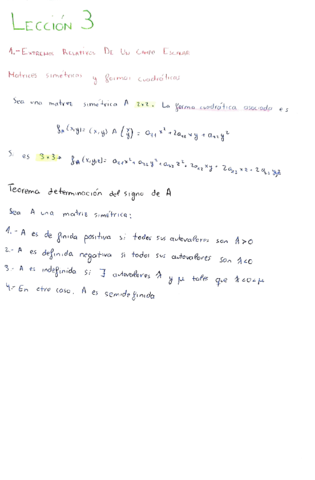 LECCIÓN 3
1.- EXTREMOS RELATIVOS DE UN CAMPO ESCALAR
Matrices simétricas y formas cuadráticas
Sea una matriz simétrica A 2x2. La forma cuadrática asociada es
f_A(x,y) = (x,y) A (x y) = a₁₁x² + 2a₁₂xy + a₂₂y²
Si es 3x3 → f_A(x,y,z) = a₁₁x² + a₂₂y² + a₃₃z² + 2a₁₂xy + 2a₁₃xz + 2a₂₃yz
Teorema determinación del signo de A
Sea A una matriz simétrica:
1.- A es definida positiva si todos sus autovalores son λ>0
2.- A es definida negativa si todos sus autovalores son λ<0
3.- A es indefinida si ∃ autovalores λ y μ tales que λ<0<μ
4.- En otro caso, A es semidefinida